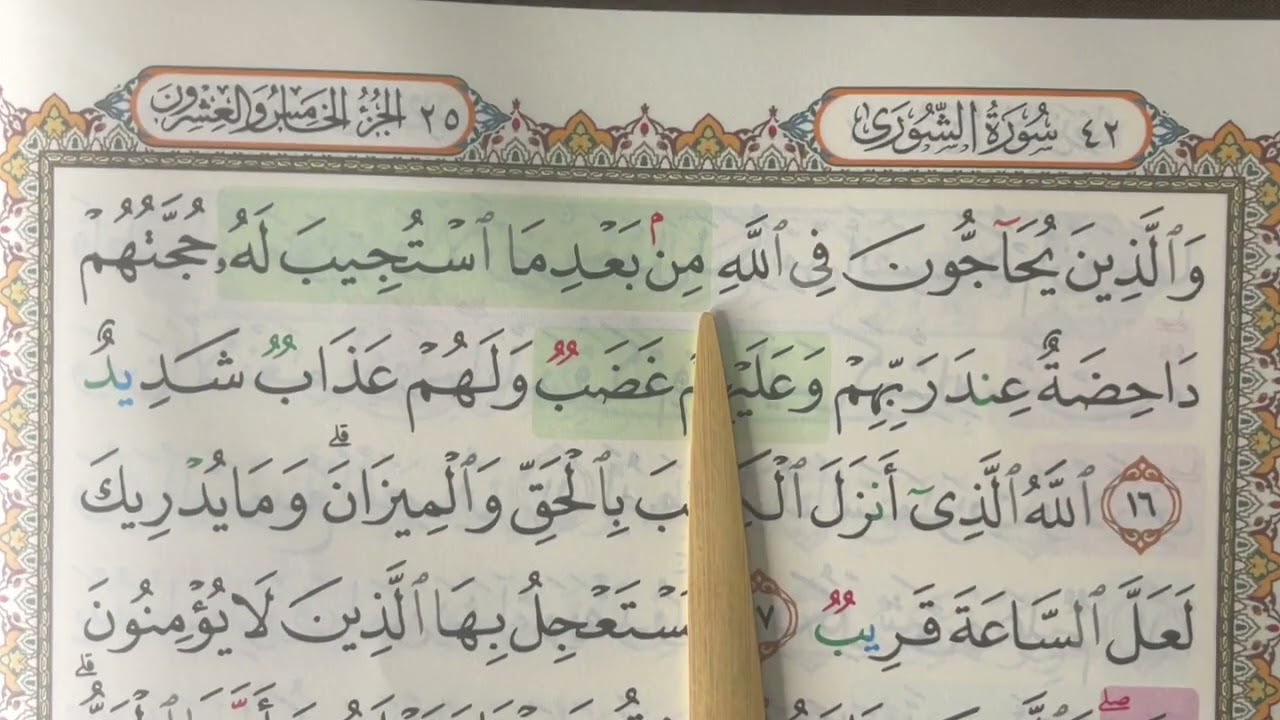 ٤٢ سُورَةُ الشُّورَى
٢٥ الجُزْءُ الخَامِسُ وَالعِشْرُونَ
وَٱلَّذِينَ يُحَآجُّونَ فِى ٱللَّهِ مِنۢ بَعْدِ مَا ٱسْتُجِيبَ لَهُۥ حُجَّتُهُمْ
دَاحِضَةٌ عِندَ رَبِّهِمْ وَعَلَيْهِمْ غَضَبٌ وَلَهُمْ عَذَابٌ شَدِيدٌ
١٦ ٱللَّهُ ٱلَّذِىٓ أَنزَلَ ٱلْكِتَٰبَ بِٱلْحَقِّ وَٱلْمِيزَانَ ۗ وَمَا يُدْرِيكَ
لَعَلَّ ٱلسَّاعَةَ قَرِيبٌ ١٧ يَسْتَعْجِلُ بِهَا ٱلَّذِينَ لَا يُؤْمِنُونَ